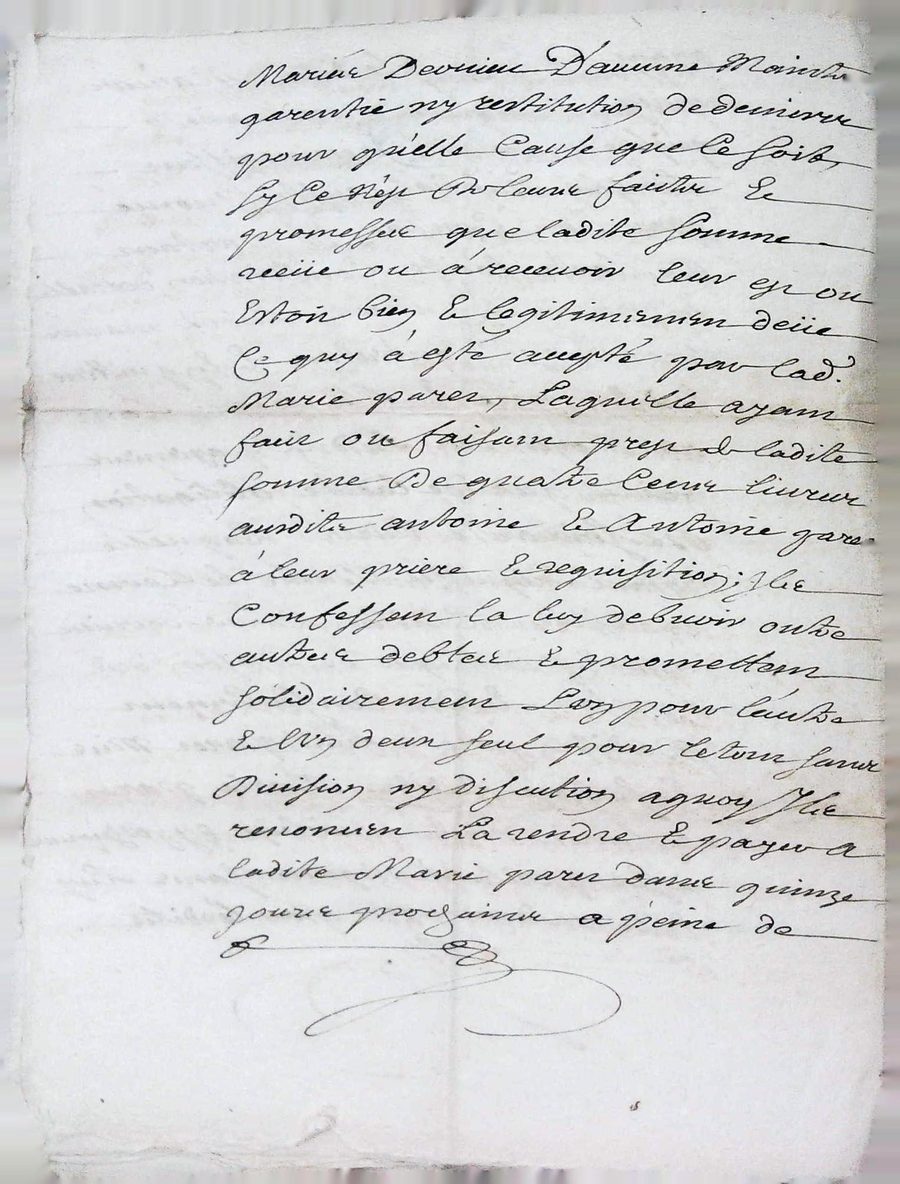 Mariés De D'aucune Maintte
garentie ny restitution de deniers
pour qu'elle Cause que Ce soit,
sy Ce N'est De leurs faitte &
promesses que ladite somme
receüe ou à recevoir leur est ou
Estoit bien & legitimement deüe
Ce quy à esté accepté par lad.
Marie pares, Laquelle ayant
fait ou faisant prest de ladite
somme De quatre Cents livres
ausdits antoine & Antoine pare
à leur priere & requisition; Ils
Confessent la luy debvoir outre
autres debtes & promettent
solidairement L'un pour l'autre
& l'Un d'eux seul pour le tout sans
Division ny discution aquoy Ils
renoncent La rendre & payer A
ladite Marie pares dans quinze
jours prochains a peine de